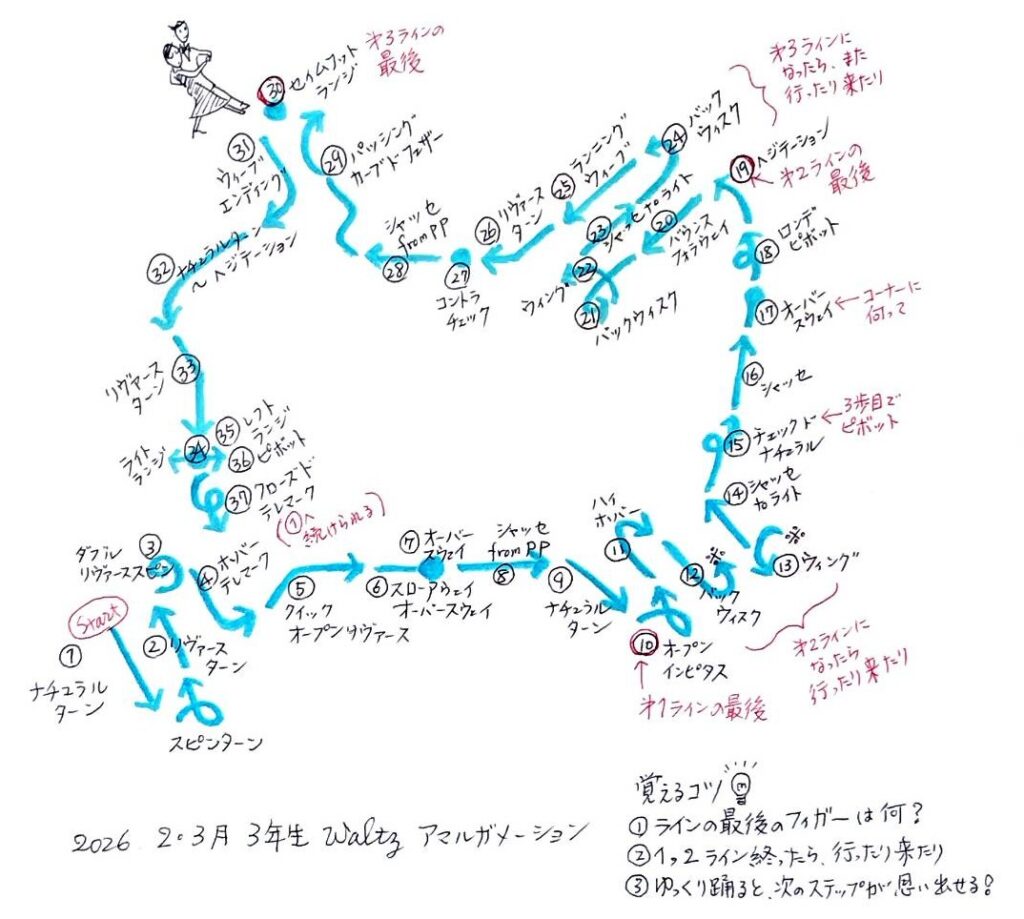 ㉚ セイムフット
ランジ
㉛
ウィーブ
エンディング
㉙ パッシング
カーブドフェザー
第3ラインの
最後
第3ラインに
なったら、また
行ったり来たり
㉔ バック
ウィスク
㉕ ランニング
ウィーブ
㉖ リヴァース
ターン
㉓ シャッセtoライト
⑳ バウンス
フォラウェイ
㉒
ウィング
㉑
バックウィスク
⑲ ヘジテーション
第2ラインの
最後
⑱ ロンデ
ピボット
⑰ オーバー
スウェイ
コーナーに
何って
⑯ シャッセ
⑮ チェックド
ナチュラル
3歩目で
ピボット
⑭ シャッセ
toライト
シャッセ
from PP
㉘
㉗
コントラ
チェック
㉜ ナチュラルターン
〜ヘジテーション
㉝
リヴァース
ターン
㉞
ライト
ランジ
㉟ レフト
ランジ
㊱ ピボット
㊲ クローズド
テレマーク
(①へ
続けられる)
③
ダブル
リヴァーススピン
④ ホバー
テレマーク
⑤
クイック
オープンリヴァース
⑥ スローアウェイ
オーバースウェイ
⑦ オーバー
スウェイ
シャッセ
from PP
⑧
⑨
ナチュラル
ターン
⑩ オープン
インピタス
第1ラインの最後
ハイ
ホバー
⑪
⑫ ※
バック
ウィスク
※
⑬ ウィング
第2ラインに
なったら
行ったり来たり
Start
①
ナチュラル
ターン
② リヴァース
ターン
スピンターン
2026 2・3月 3年生 Waltz アマルガメーション
覚えるコツ
① ラインの最後のフィガーは何？
② 1,2ライン終ったら、行ったり来たり
③ ゆっくり踊ると、次のステップが思い出せる！